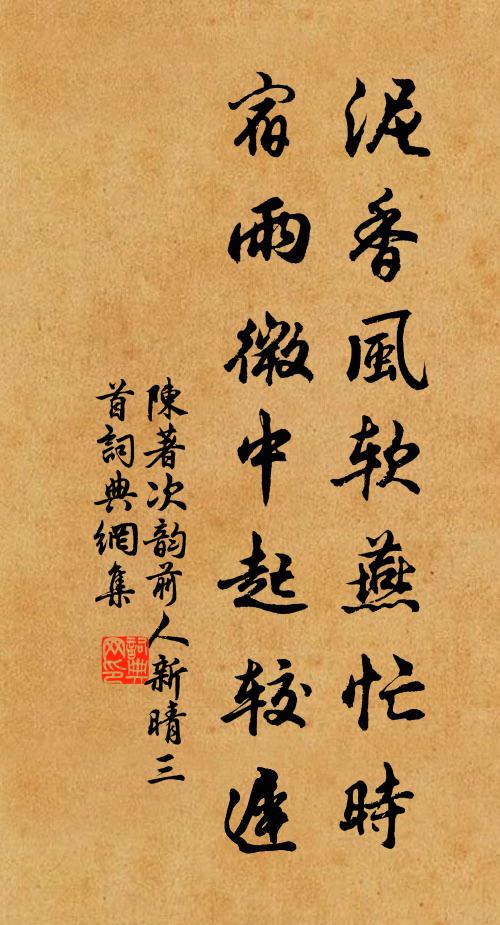 泥香風软燕忙時
宿雨微中起较遲
陳著次韵前人新晴三
首詞典網集
詞典
网印